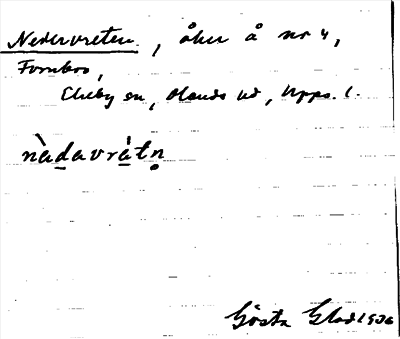 Nedervreten, åker å nr 4,
Fornbro,
Ekeby sn, Olands hd, Upps. l.
nàdavrátn
Gösta Glad 1936